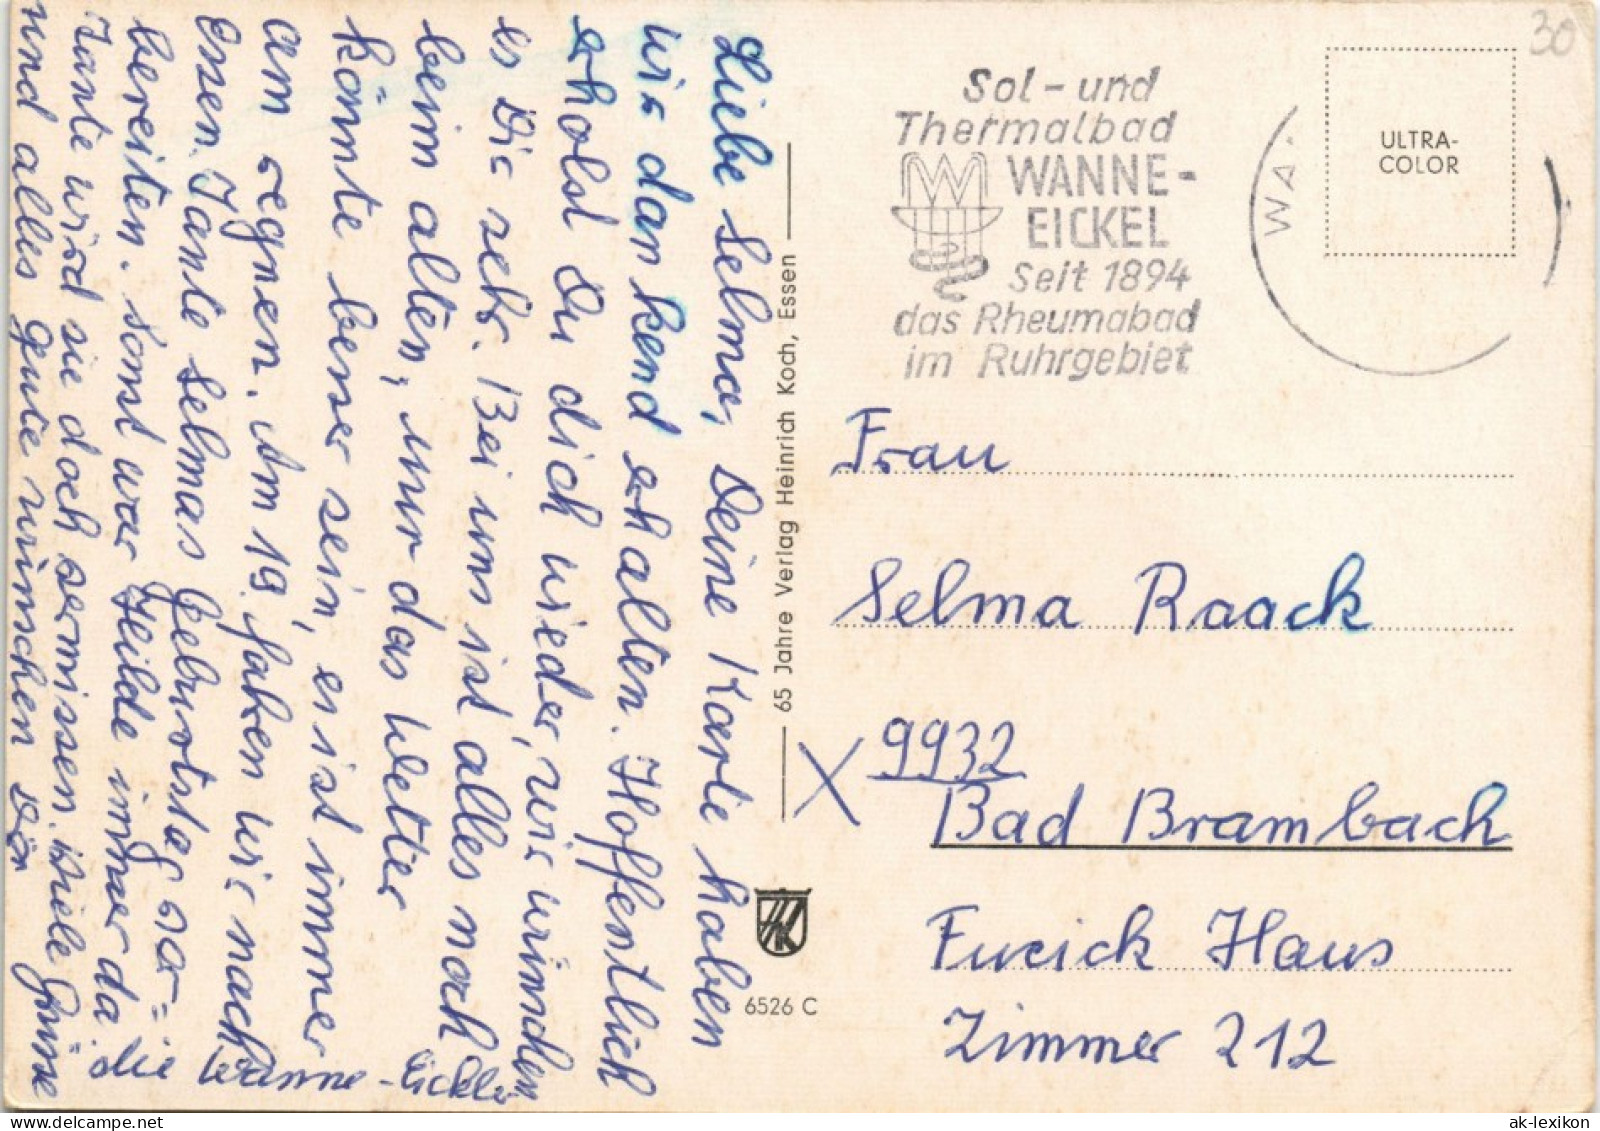 Liebe Selma, Deine Karte haben
wir dankend erhalten. Hoffentlich
erholst Du dich wieder, wir wünschen
es Dir sehr. Bei uns ist alles noch
beim alten, nur das Wetter
könnte besser sein, es ist immer
am regnen. Am 19. fahren wir nach
Essen Tante Selmas Geburtstag vor=
bereiten. Sonst war Heilde immer da
Tante wird sie doch vermissen. Viele Grüße
und alles gute wünschen Dir
die Wanne-Eickler
65 Jahre Verlag Heinrich Koch, Essen
6526 C
30
Sol- und
Thermalbad
WANNE-
EICKEL
Seit 1894
das Rheumabad
im Ruhrgebiet
WA
ULTRA-
COLOR
Frau
Selma Raack
9932
Bad Brambach
Fucick Haus
Zimmer 212
ak-lexikon